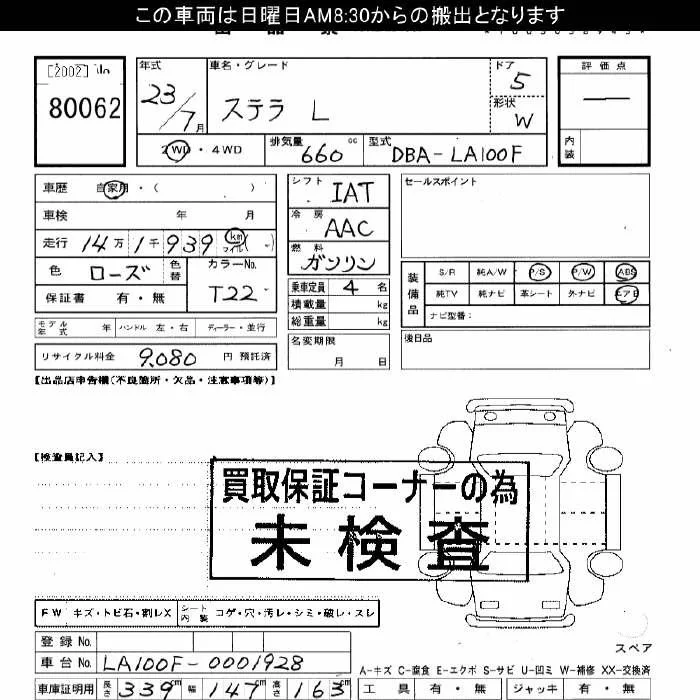 この車両は日曜日AM8:30からの搬出となります
[2002] No
80062
年式 23/7月
車名・グレード ステラ L
ドア 5
形状 W
評価点 —
内装
2WD・4WD
排気量 660 cc
型式 DBA-LA100F
車歴 自家用・( )
車検 年 月
走行 14万1千939 (km マイル)( - )
色 ローズ 色替
カラーNo. T22
保証書 有・無
モデル年式 年 ハンドル 左・右 ディーラー・並行
リサイクル料金 9,080 円 預託済
シフト IAT
冷房 AAC
燃料 ガソリン
乗車定員 4 名
積載量 kg
総重量 kg
名変期限 月 日
セールスポイント
装備品
S/R 純A/W P/S P/W ABS
純TV 純ナビ 革シート 外ナビ エアB
ナビ型番:
後日品
【出品店申告欄(不良箇所・欠品・注意事項等)】
【検査員記入】
買取保証コーナーの為
未検査
FW キズ・トビ石・割レX シート内装 コゲ・穴・汚レ・シミ・破レ・スレ
スペア
登録No.
車台No. LA100F-0001928
A-キズ C-腐食 E-エクボ S-サビ U-凹ミ W-補修 XX-交換済
車庫証明用 長さ 339cm 幅 147cm 高さ 163cm
工具 有・無 ジャッキ 有・無